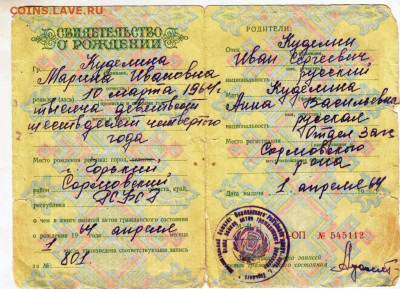 COINS.LAVE.RU
СВИДЕТЕЛЬСТВО
О РОЖДЕНИИ
Гр. Куделина
Марина Ивановна
родился (лась) 10 марта 1964
тысяча девятьсот
шестьдесят четвертого
года
Место рождения ребенка: город, селение,
Горький
район Сормовский край,
республика РСФСР
о чем в книге записей актов гражданского состояния
о рождении 19 64 апреля
месяца 1 числа произведена соответствующая запись
за № 801.
РОДИТЕЛИ:
Отец Куделин
Иван Сергеевич
национальность русский
Мать Куделина
Анна Васильевна
национальность русская
Отдел загс
Сормовского
р-она
Дата выдачи 1 апреля 64
-ОП № 545112